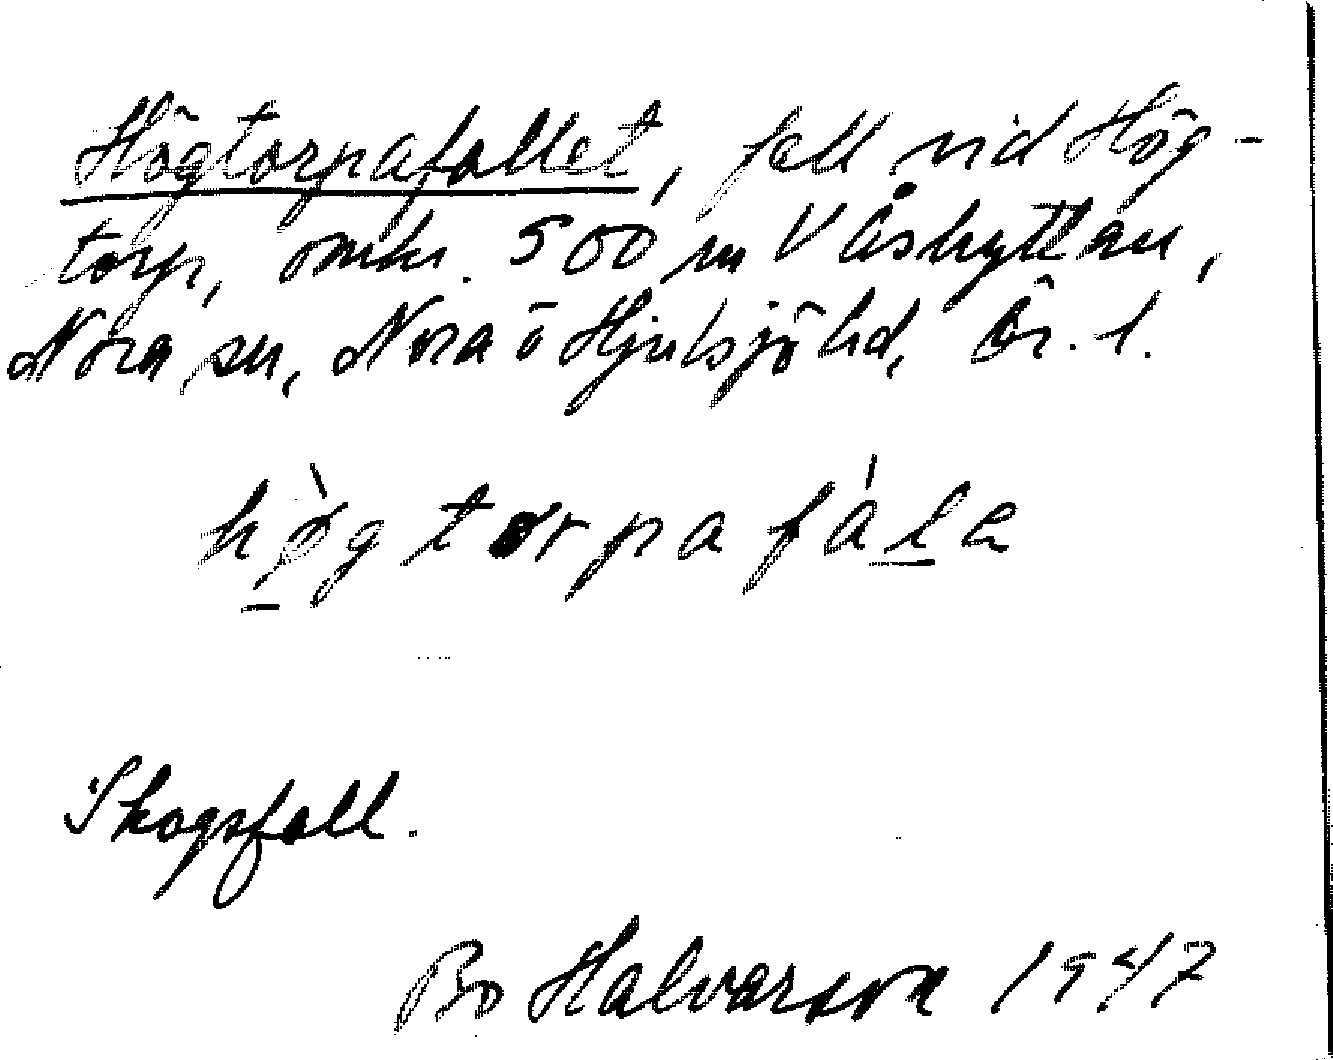 Högtorpafallet, fall vid Hög-
torp, omkr. 500 m V Åshyttan,
Nora sn, Nora o Hjulsjö hd, Ör. l.
hø̀gtorpafála
Skogsfall.
Bo Halvarson 1947